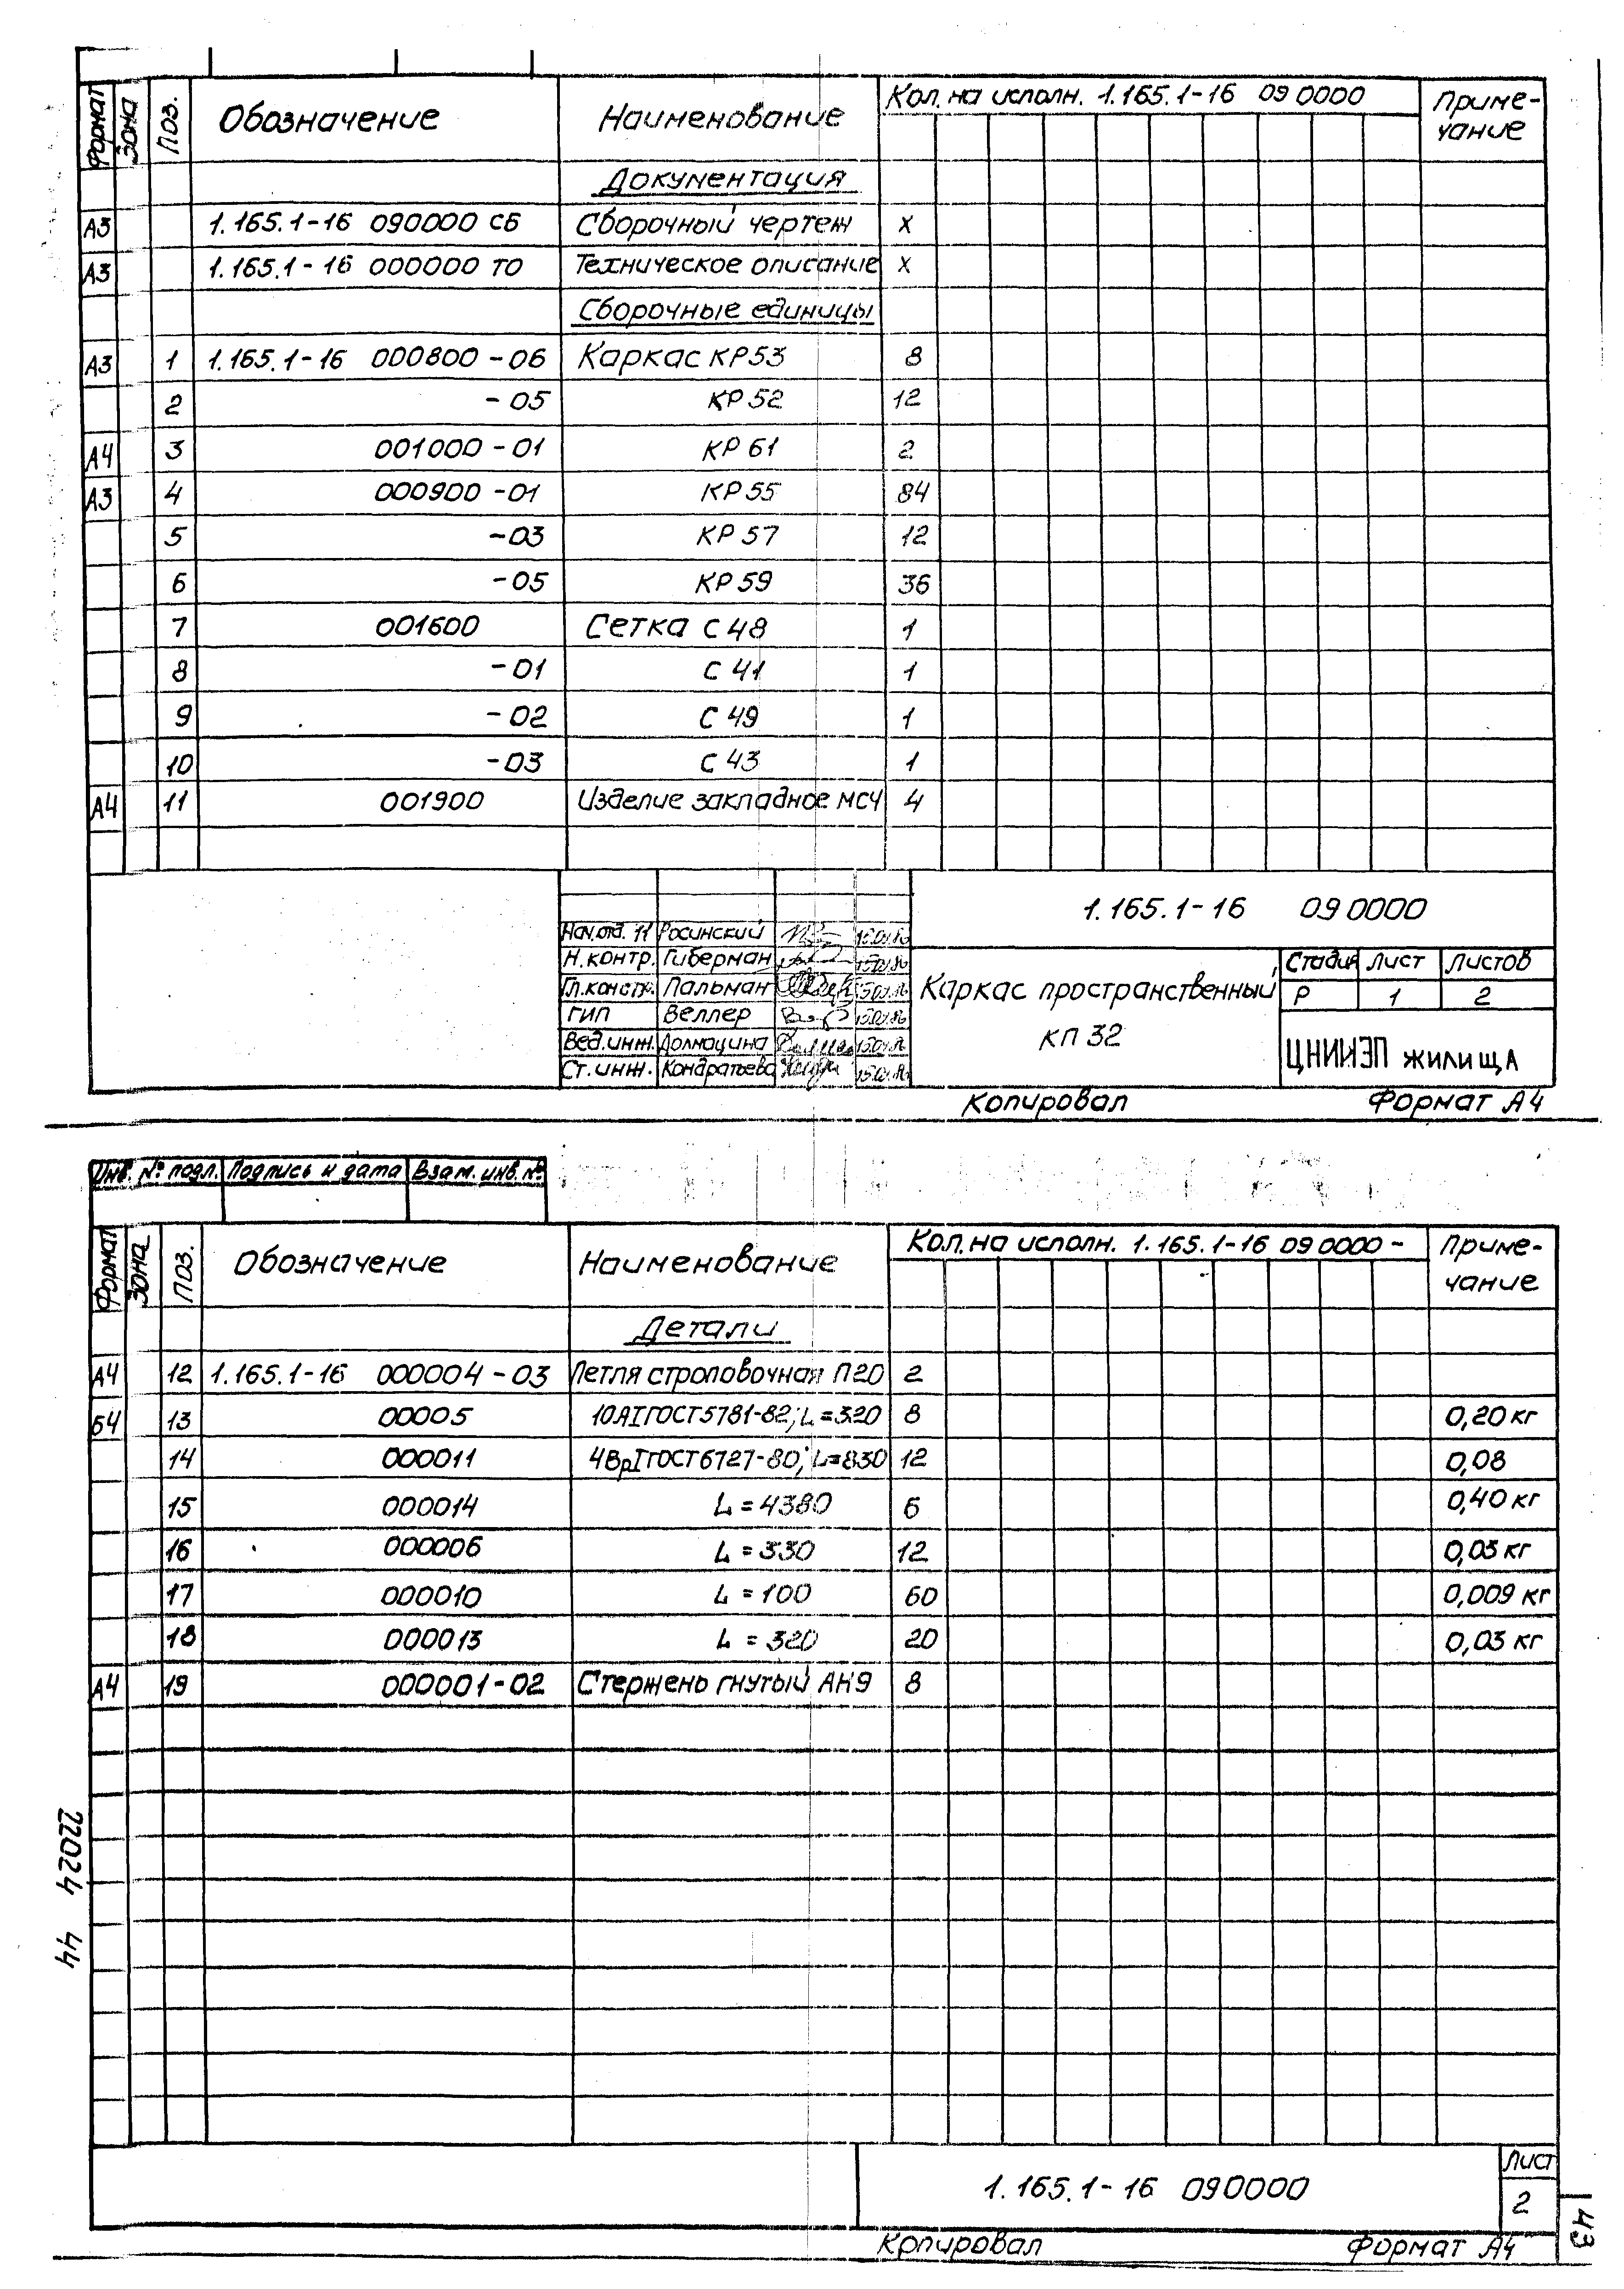 Формат Зона Поз. Обозначение Наименование Кол. на исполн. 1.165.1-16 090000 Приме-
чание
Документация
А3 1.165.1-16 090000 СБ Сборочный чертеж х
А3 1.165.1-16 000000 ТО Техническое описание х
Сборочные единицы
А3 1 1.165.1-16 000800-06 Каркас КР53 8
2 -05 КР52 12
А4 3 001000-01 КР61 2
А3 4 000900-01 КР55 84
5 -03 КР57 12
6 -05 КР59 36
7 001600 Сетка С48 1
8 -01 С41 1
9 -02 С49 1
10 -03 С43 1
А4 11 001900 Изделие закладное МС4 4
1.165.1-16 090000
Нач.отд. 11 Росинский
Н.контр. Гиберман
Гл.констр. Пальман
ГИП Веллер
Вед.инж. Долмацина
Ст.инж. Кондратьева
Каркас пространственный
КП 32
Стадия Лист Листов
Р 1 2
ЦНИИЭП жилища
Копировал Формат А4
Инв. № подл. Подпись и дата Взам. инв. №
Формат Зона Поз. Обозначение Наименование Кол. на исполн. 1.165.1-16 090000- Приме-
чание
Детали
А4 12 1.165.1-16 000004-03 Петля строповочная П20 2
Б4 13 00005 10АІ ГОСТ 5781-82; L=320 8 0,20 кг
14 000011 4ВрІ ГОСТ 6727-80; L=830 12 0,08
15 000014 L=4380 6 0,40 кг
16 000006 L=330 12 0,03 кг
17 000010 L=100 60 0,009 кг
18 000013 L=320 20 0,03 кг
А4 19 000001-02 Стержень гнутый АН9 8
22024 44
1.165.1-16 090000
Лист
2
43
Копировал Формат А4